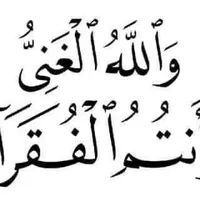 وَٱللَّهُ ٱلْغَنِىُّ
أَنتُمُ ٱلْفُقَرَآ